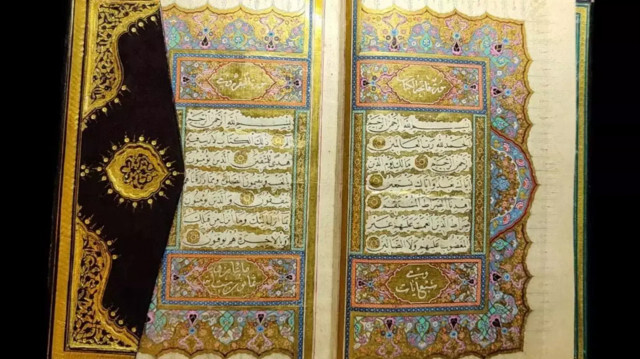 بسم الله الرحمن الرحيم
الحمد لله رب العالمين
الرحمن الرحيم
اياك نعبد واياك
اهدنا الصراط
الذين انعمت عليهم غير
المغضوب عليهم ولا الضالين
وهي
سبع آيات
بسم الله الرحمن الرحيم
الم ذلك الكتاب لا ريب فيه
هدى للمتقين الذين يؤمنون
بالغيب ويقيمون الصلوة ومما
رزقناهم ينفقون والذين يؤمنون
بما انزل اليك وما انزل من قبلك
وبالاخرة هم يوقنون